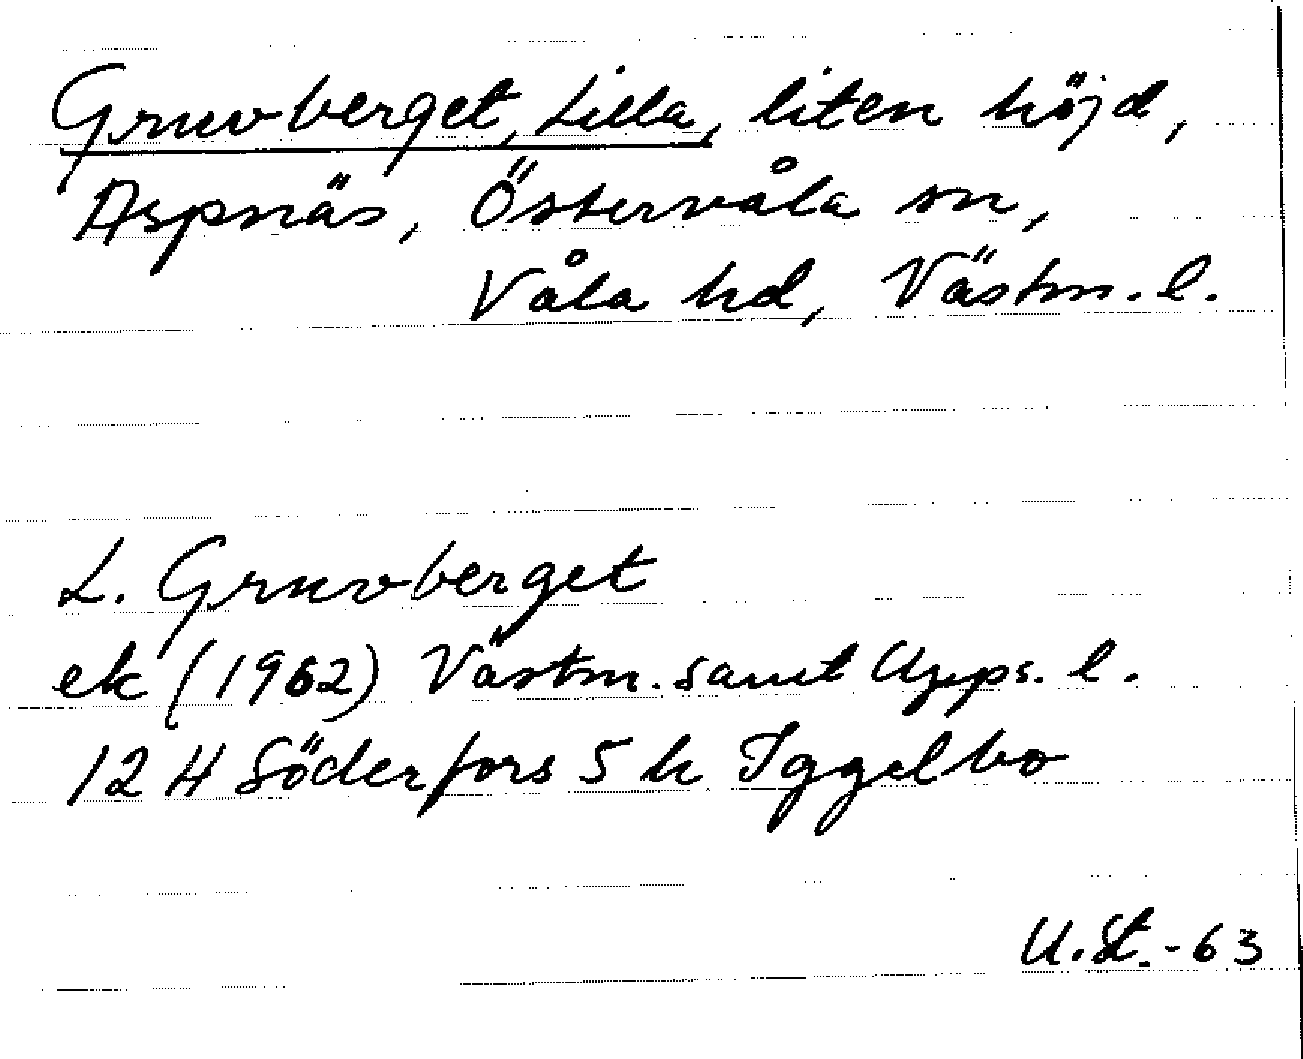 Gruvberget, Lilla, liten höjd,
Aspnäs, Östervåla sn,
Våla hd, Västm. l.
L. Gruvberget
ek (1962) Västm. samt Upps. l.
12 H Söderfors 5 h Iggelbo
U.St.-63